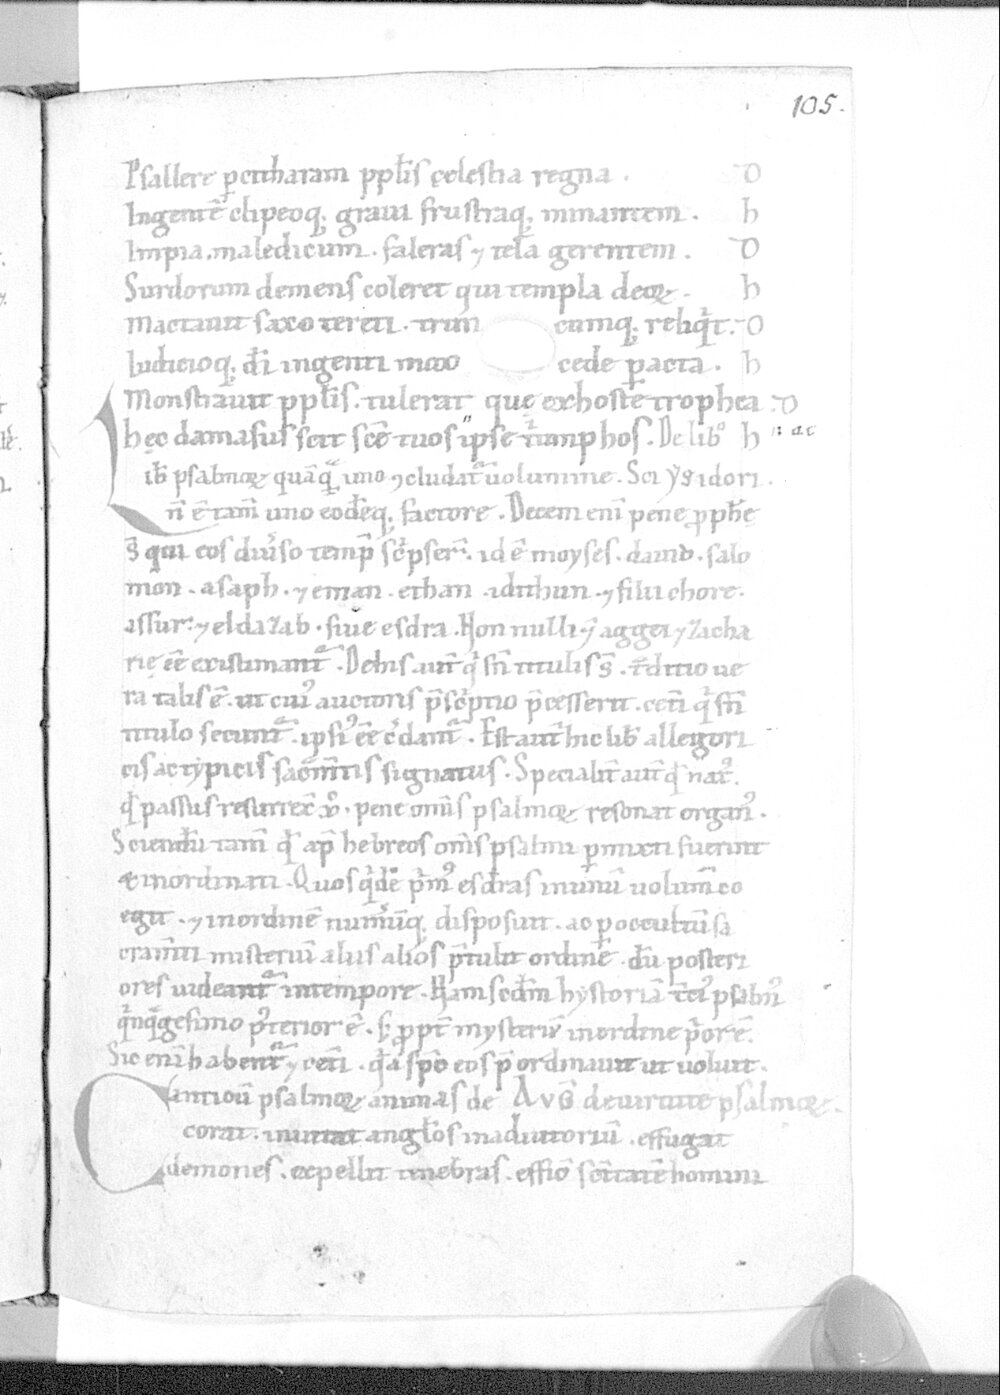 105.
Psallere ꝑ citharam ppl̄is celestia regna . D
Ingentē clipeoq; graui frustraq; minantem . h
Impia maledictum . faleras ⁊ tela gerentem . D
Surdorum demens coleret qui templa deoꝝ . h
Mactauit saxo tereti . trun cumq; reliqͥt . D
Iudicioq; dī ingenti mox cede ꝑacta . h
Monstrauit ppl̄is . tulerat que ex hoste trophea D
hec damasus scit scē tuos ipse tͥumphos . De libͦ h
ib̄ psalmoꝝ quāqͣ uno ↄcludatᷣ uolumine . Sci ysidori .
n̄ ē tam̄ uno eodēq; factore . Decem enī pene ꝓph̄e
s̄ qui eos diuͥso temp̄ scͥpserͬ . id ē moyses . dauid . salo
mon . asaph . ⁊ eman . ethan . idithun . ⁊ filii chore .
assur . ⁊ eldazab . siue esdra . Non nulli ⁊ aggei ⁊ zacha
rię eē existimantᷣ . De his aut̄ qͥ sn̄ titulis s̄ . tͣditio ue
ra talis ē . ut cuiꝰ auctoris p̄scͥptio p̄cesserit . cetī qͥ sn̄
titulo secuntᷣ . ipsiꝰ eē cͤdantᷣ . Est aut̄ hic lib̄ allegori
cis ac typicis sacͣm̄tis signatus . Specialit̄ aut̄ qd̄ natꝰ .
qd̄ passus resurrex̄ xp̄c . pene om̄is psalmoꝝ resonat organꝰ .
Sciendū tam̄ qd̄ ap̄ hebreos om̄s psalmi ꝑmixti fuerint
& inordinati . Quos qͥdē pͥmꝰ esdras in unū uolum̄ co
egit . ⁊ in ordinē num̄ūq; disposuit . ac ꝑ occultū sa
cram̄ti misteriū aliis alios p̄tulit ordinē . dū posteri
ores uideantᷣ in tempore . Nam scd̄m hystoriā tͨiꝰ psalmꝰ
qͥnqͣgesimo posterior ē . s; ꝓpt̄ mysteriū in ordine pͥor ē .
Sic enī habentᷣ ⁊ cetī . qͣ sp̄c eos p̄ordinauit ut uoluit .
Cantio psalmoꝝ animas de Avḡ de uirtute psalmoꝝ .
corat . inuitat angl̄os in adiutoriū . effugat
demones . expellit tenebras . efficͥ scītatē homini